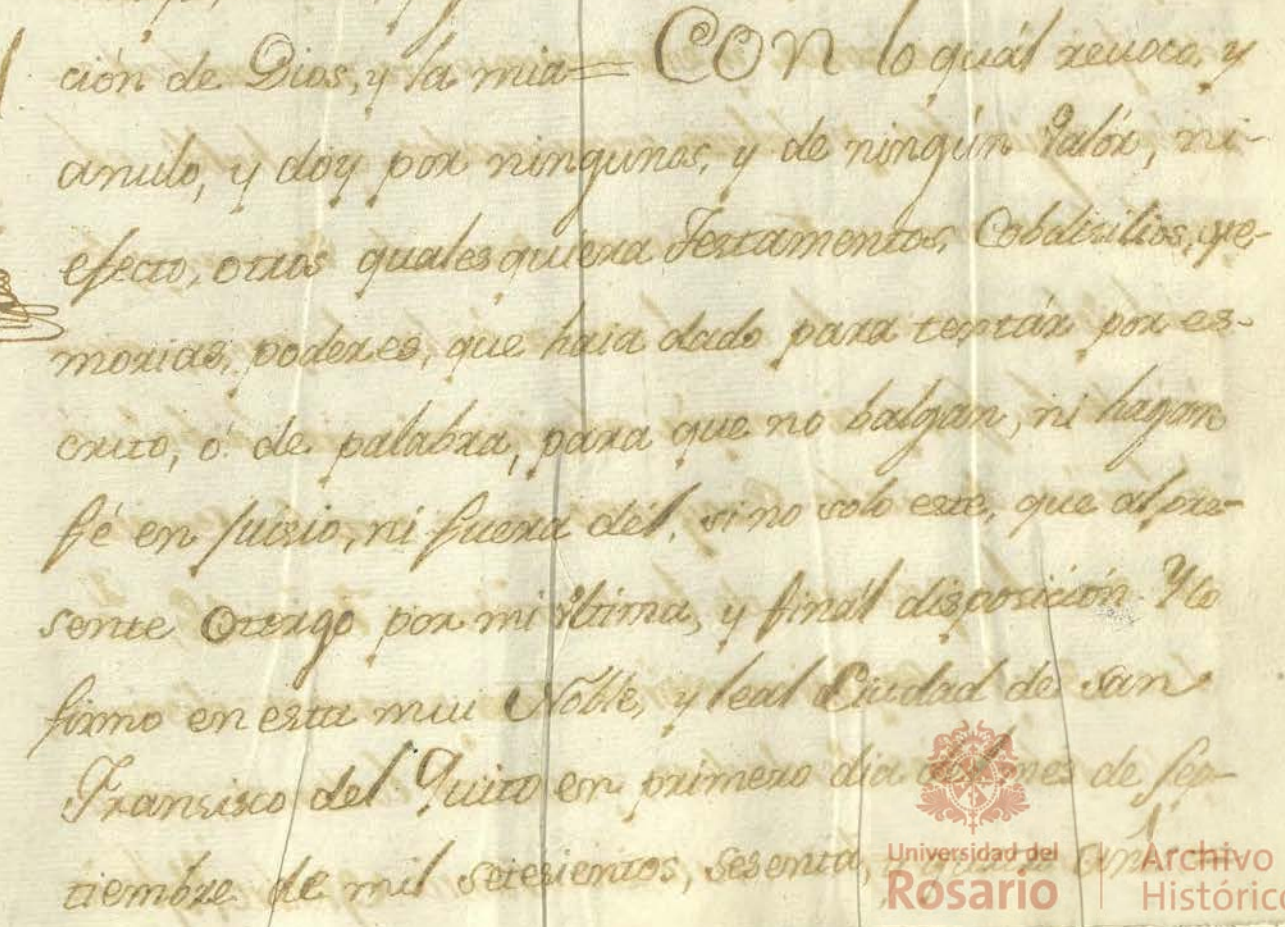 ción de Dios, y la mia= CON lo quál revoco, y
anulo, y doy por ningunos, y de ningún Valór, ni
efecto, otros quales quiera Testamentos, Cobdisilios, me-
morias, poderes, que haia dado para testár por es-
crito, ó de palabra, para que no balgan, ni hagan
fé en Juisio, ni fuera dél, si no solo este, que al pre-
sente Otorgo por mi última, y finál disposición. Y lo
firmo en esta mui Noble, y leal Ciudad de San
Fransisco del Quito en primero dia del mes de Sep-
tiembre de mil setesientos, sesenta,
Universidad del
Rosario
Archivo
Histórico